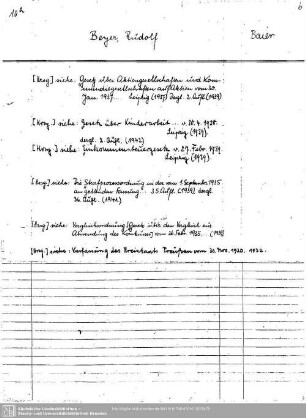 16h
6
Beyer, Rudolf Baier
[Hrsg.] siehe: Gesetz über Aktiengesellschaften und Kom-
manditgesellschaften auf Aktien vom 30.
Jan. 1937. Leipzig (1937) dsgl. 2. Aufl. (1939)
[Hrsg.] siehe: Gesetz über Kinderarbeit . . v. 30. 4. 1938.
Leipzig (1939).
dsgl. 2. Aufl. (1942)
[Hrsg.] siehe: Einkommensteuergesetz v. 27. Febr. 1939.
Leipzig (1939)
[Hrsg.] siehe: Die Strafprozessordnung in der vom 1. September 1935
an geltenden Fassung. . 35. Aufl. (1939) dsgl.
36. Aufl. (1941)
[Hrsg.] siehe: Vergleichsordnung [Gesetz über den Vergleich zur
Abwendung des Konkurses] vom 26. Febr. 1935.
[Hrsg.] siehe: Verfassung des Freistaats Preußen vom 30. Nov. 1920. 1922.
Sächsische Landesbibliothek -
Staats- und Universitätsbibliothek Dresden